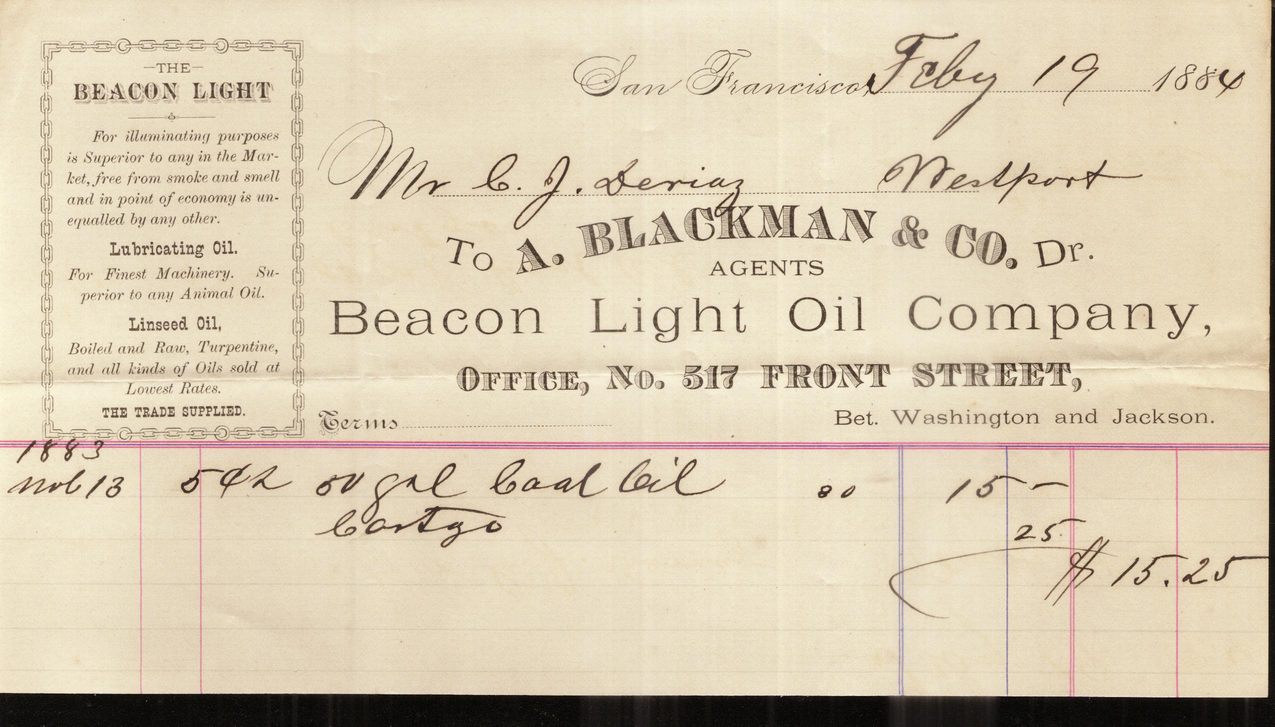 —THE—
BEACON LIGHT
For illuminating purposes
is Superior to any in the Mar-
ket, free from smoke and smell
and in point of economy is un-
equalled by any other.
Lubricating Oil.
For Finest Machinery. Su-
perior to any Animal Oil.
Linseed Oil,
Boiled and Raw, Turpentine,
and all kinds of Oils sold at
Lowest Rates.
THE TRADE SUPPLIED.
San Francisco, Feby 19 1884
Mr C. J. Deriaz Westport
To A. BLACKMAN & CO. Dr.
AGENTS
Beacon Light Oil Company,
OFFICE, No. 517 FRONT STREET,
Terms
Bet. Washington and Jackson.
1883
Nov 13 5 50 gal Coal Oil 15 –
25
$ 15.25